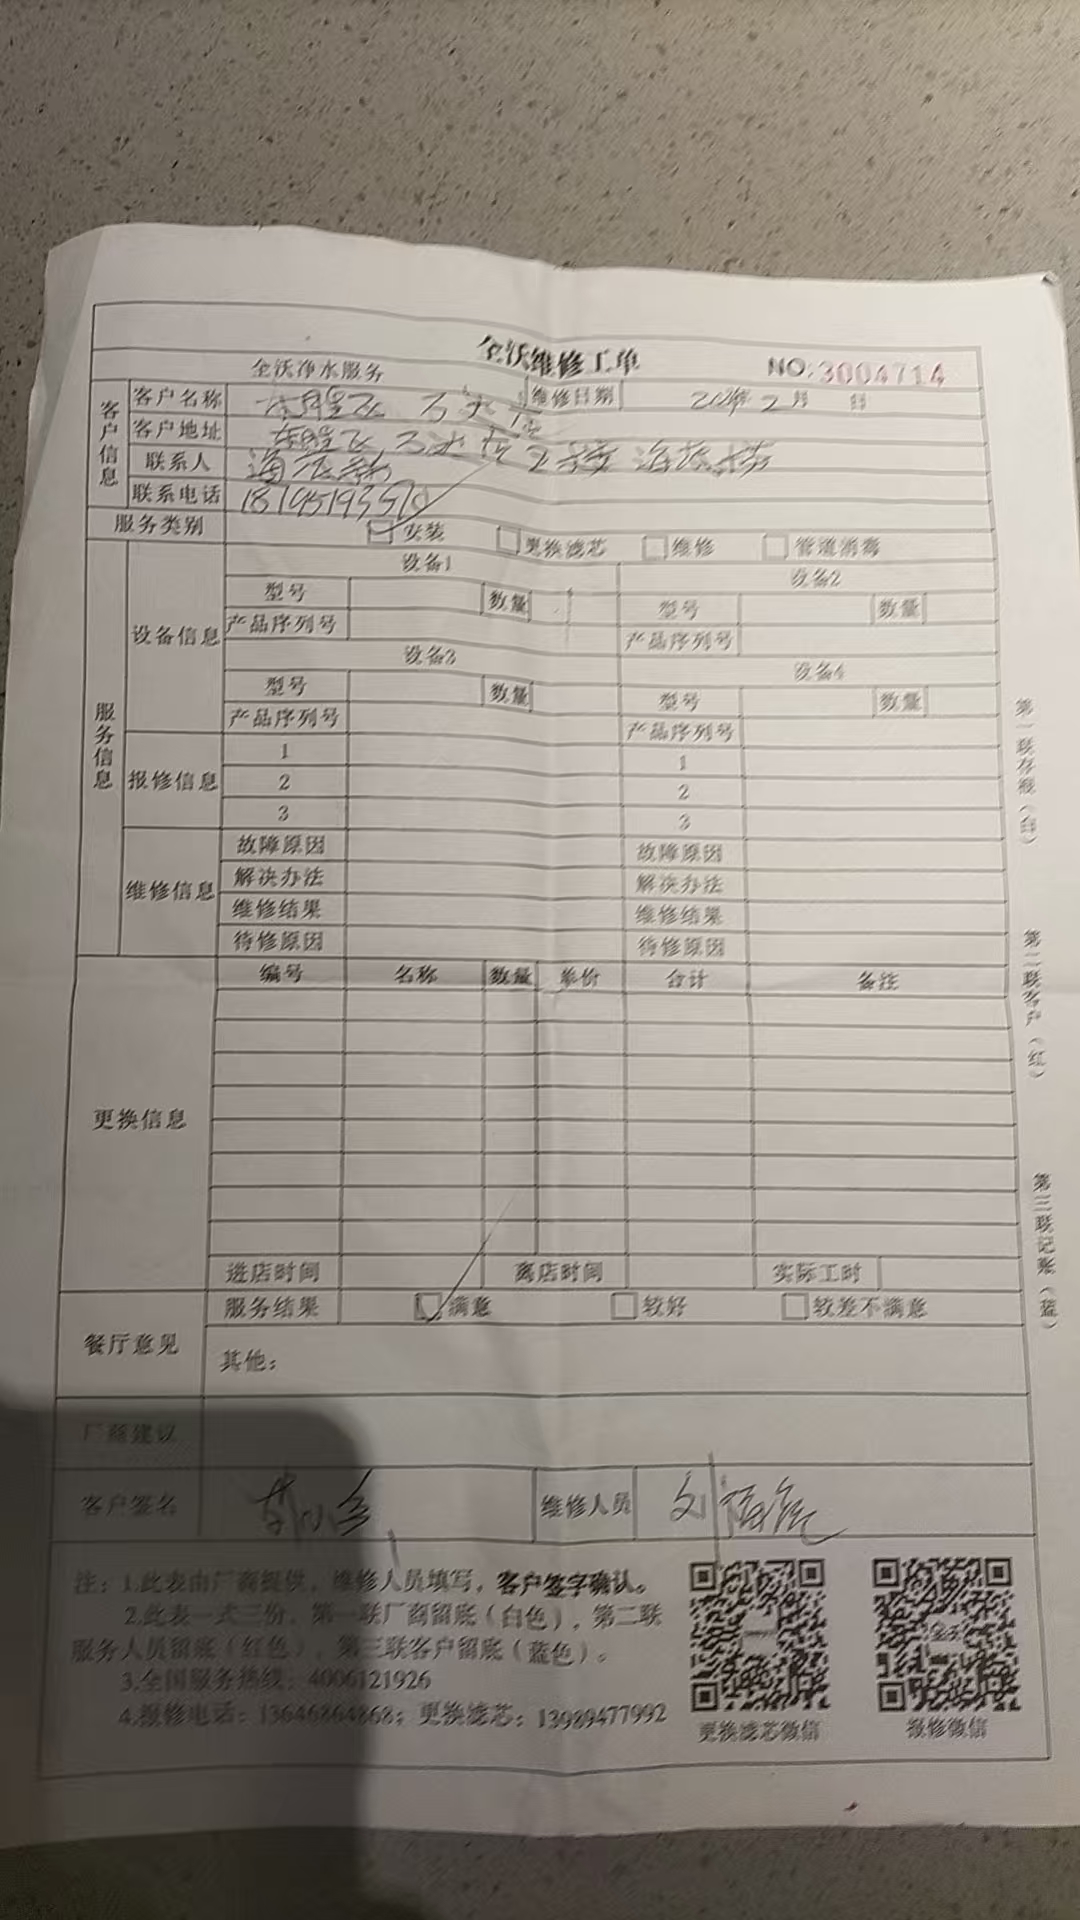 全沃维修工单
全沃净水服务 NO:3004714
客户信息
客户名称 万达 维修日期 年2月 日
客户地址 万达 2楼
联系人
联系电话
服务类别 安装 更换滤芯 维修 管道消毒
服务信息
设备信息
设备1 设备2
型号 数量 型号 数量
产品序列号 产品序列号
设备3 设备4
型号 数量 型号 数量
产品序列号 产品序列号
报修信息
1 1
2 2
3 3
维修信息
故障原因 故障原因
解决办法 解决办法
维修结果 维修结果
待修原因 待修原因
更换信息
编号 名称 数量 单价 合计 备注
进店时间 离店时间 实际工时
餐厅意见
服务结果 满意 较好 较差不满意
其他:
厂商建议
客户签名 维修人员 刘
注:1.此表由厂商提供,维修人员填写,客户签字确认。
2.此表一式三份,第一联厂商留底(白色),第二联
服务人员留底(红色),第三联客户留底(蓝色)。
3.全国服务热线:4006121926
4.报修电话:13646864868;更换滤芯:13989477992
更换滤芯微信 报修微信
第一联存根(白)
第二联客户(红)
第三联记账(蓝)